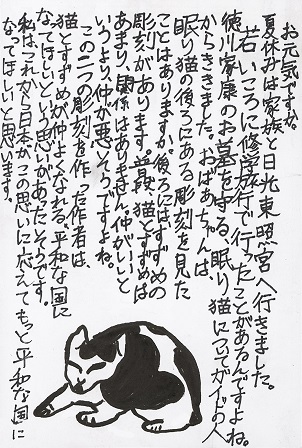 お元気ですか。
夏休みは家族と日光東照宮へ行きました。
若いころに修学旅行で行ったことがあるんですよね。
徳川家康のお墓を守る、眠り猫についてガイドの人
からききました。おばあちゃんは、
眠り猫の後ろにある彫刻を見た
ことはありますか。後ろにはすずめの
彫刻があります。普段、猫とすずめは
あまり、関係はありません。仲がいいと
いうより、仲が悪そうですよね。
この二つの彫刻を作った作者は、
猫とすずめが仲よくなれる、平和な国に
なってほしいという思いがあったそうです。
私はこれから日本がこの思いに応えてもっと平和な国に
なてほしいと思います。